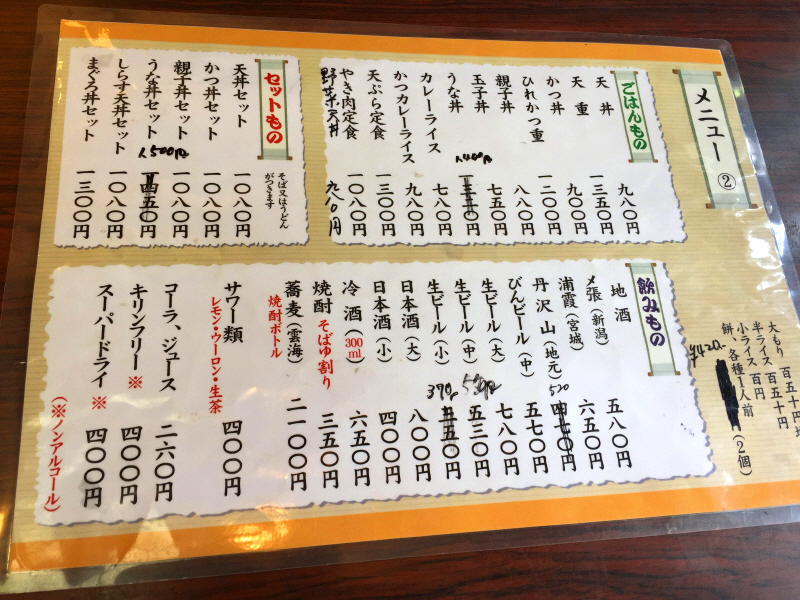 メニュー②
大もり 百五十円増
半ライス 百五十円
小ライス 百円
餅、各種1人前 (2個)
¥420-
ごはんもの
天丼 九八〇円
天重 一三五〇円
かつ丼 九〇〇円
ひれかつ重 一二〇〇円
親子丼 八八〇円
玉子丼 七五〇円
うな丼 1,400円
カレーライス 七八〇円
かつカレーライス 九八〇円
天ぷら定食 一三〇〇円
やき肉定食 一〇八〇円
野菜天丼 九八〇円
セットもの
そば又はうどん
がつきます
天丼セット 一〇八〇円
かつ丼セット 一〇八〇円
親子丼セット 一〇八〇円
うな丼セット 1,500円 一四五〇円
しらす天丼セット 一〇八〇円
まぐろ丼セット 一三〇〇円
飲みもの
地酒
〆張(新潟) 五八〇円
浦霞(宮城) 六五〇円
丹沢山(地元) 520 四七〇円
びんビール(中) 五七〇円
生ビール(大) 七八〇円
生ビール(中) 550円 五三〇円
生ビール(小) 390円 五五〇円
日本酒(大) 八〇〇円
日本酒(小) 四〇〇円
冷酒(300ml) 六五〇円
焼酎 そばゆ割り 三五〇円
蕎麦(雲海) 二一〇〇円
焼酎ボトル
サワー類 四〇〇円
レモン・ウーロン・生茶
コーラ、ジュース 二六〇円
キリンフリー※ 四〇〇円
スーパードライ※ 四〇〇円
(※ノンアルコール)